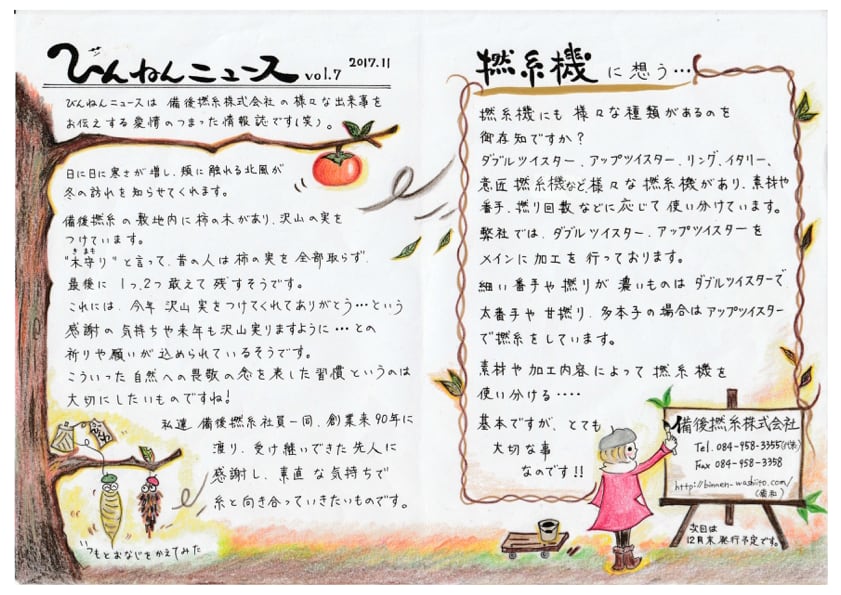 びんねんニュース vol.7 2017.11
びんねんニュースは 備後撚糸株式会社の様々な出来事を
お伝えする愛情のつまった情報誌です(笑)。
日に日に寒さが増し、頬に触れる北風が
冬の訪れを知らせてくれます。
備後撚糸の敷地内に柿の木があり、沢山の実を
つけています。
"木守り"と言って、昔の人は柿の実を全部取らず、
きまも
最後に 1つ、2つ敢えて残すそうです。
これには、今年沢山実をつけてくれてありがとう…という
感謝の気持ちや来年も沢山実りますように…との
祈りや願いが込められているそうです。
こういった自然への畏敬の念を表した習慣というのは
大切にしたいものですね!
私達 備後撚糸社員一同、創業来90年に
渡り、受け継いできた先人に
感謝し、素直な気持ちで
糸と向き合っていきたいものです。
いつもとおなじをかえてみた
撚糸機に想う…
撚糸機にも 様々な種類があるのを
御存知ですか?
ダブルツイスター、アップツイスター、リング、イタリー、
意匠撚糸機など様々な撚糸機があり、素材や
番手、撚り回数などに応じて使い分けています。
弊社では、ダブルツイスター、アップツイスターを
メインに加工を行っております。
細い番手や撚りが濃いものはダブルツイスターで、
太番手や甘撚り、多本子の場合はアップツイスター
で撚糸をしています。
素材や加工内容によって撚糸機を
使い分ける‥‥
基本ですが、とても
大切な事
なのです!!
備後撚糸株式会社
Tel. 084-958-3355(代表)
Fax 084-958-3358
http://binnen-washiito.com/
次回は
12月末発行予定です。